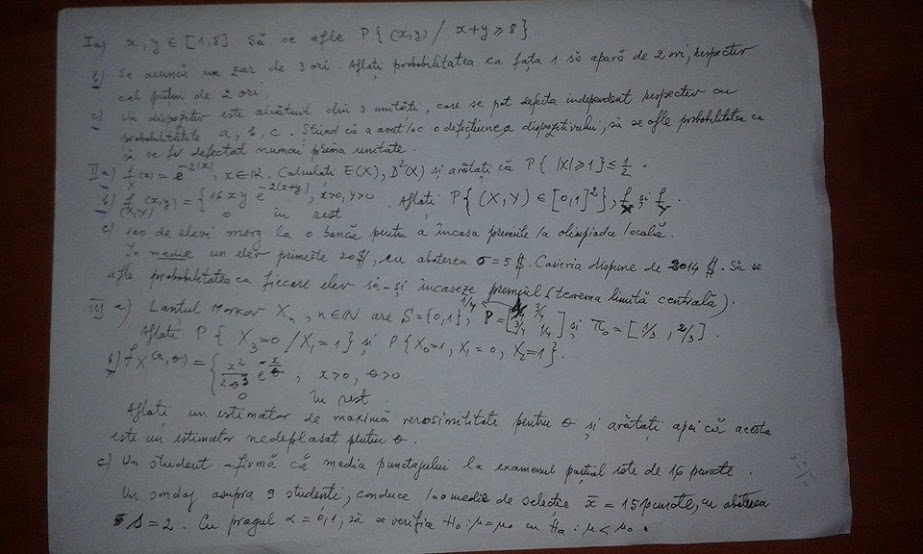 I a) x, y ∈ [1.8] Să se afle P{(x,y) / x+y ≥ 8}
b) Se aruncă un zar de 3 ori. Aflați probabilitatea ca fața 1 să apară de 2 ori, respectiv
cel puțin de 2 ori.
c) Un dispozitiv este alcătuit din 3 unități, care se pot defecta independent respectiv cu
probabilitățile a, b, c. Știind că a avut loc o defecțiune a dispozitivului, să se afle probabilitatea ca
să se fi defectat numai prima unitate.
II a) f_X(x) = e^{-2|x|}, x∈ℝ. Calculați E(X), D²(X) și arătați că P{|X| ≥ 1} ≤ 1/2.
b) f_(X,Y)(x,y) = { 16 x y e^{-2(x+y)}, x>0, y>0 . Aflați P{(X,Y) ∈ [0,1]²}, f_X și f_Y.
0 în rest
c) 100 de elevi merg la o bancă pentru a încasa premiile la olimpiada locală.
În medie un elev primește 20$, cu abaterea σ = 5$. Casieria dispune de 2014 $. Să se
afle probabilitatea ca fiecare elev să-și încaseze premiul (teorema limită centrală).
III a) Lanțul Markov X_n, n∈ℕ are S={0,1}, P = [1/4 3/4
3/4 1/4] și π₀ = [1/3, 2/3].
Aflați P{X₃=0 / X₁=1} și P{X₀=1, X₁=0, X₂=1}.
b) f_X(x,θ) = { x²/2θ³ e^{-x/θ}, x>0, θ>0
0 în rest.
Aflați un estimator de maximă verosimilitate pentru θ și arătați apoi că acesta
este un estimator nedeplasat pentru θ.
c) Un student afirmă că media punctajului la examenul parțial este de 16 puncte.
Un sondaj asupra 9 studenți, conduce la o medie de selecție x̄ = 15 puncte, cu abaterea
s = 2. Cu pragul α = 0,1, să se verifice H₀: μ=μ₀ cu Hₐ: μ<μ₀.